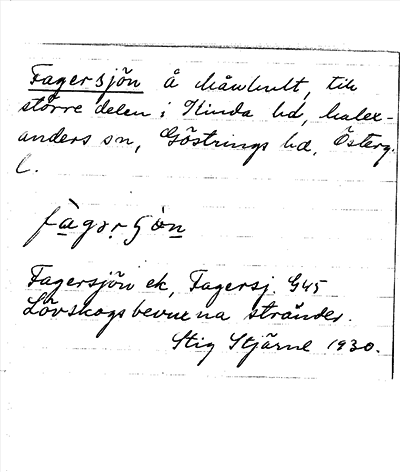 Fagersjön å Måshult, till
större delen i Kinda hd, Malex-
anders sn, Göstrings hd, Österg.
L.
fàgərʂö̀n
Fagersjön ek, Fagersj. G45
Lövskogsbevuxna stränder.
Stig Stjärne 1930.